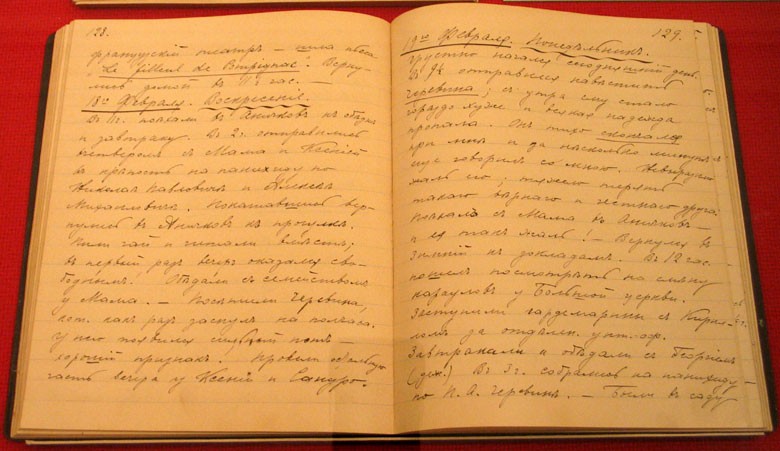 128.
французскій театръ — шла пьеса
"Le filleul de Pompignac". Верну-
лись домой въ 11½ час.
18го Февраля. Воскресенье.
Въ 11 ч. поѣхали въ Аничковъ къ обѣднѣ
и завтраку. Въ 2 ч. отправились
вчетверомъ съ Мама и Ксеніей
въ крѣпость на панихиду по
Николаѣ Павловичѣ и Алексѣѣ
Михайловичѣ. Покатавшись вер-
нулись въ Аничковъ
Пили чай и читали вмѣстѣ;
въ первый разъ вечеръ оказался сво-
боднымъ. Обѣдали съ семействомъ
у Мама. — Посѣтили Черевина,
кот. какъ разъ заснулъ на полчаса.
У него появился потъ —
хорошій признакъ. Провели большую
часть вечера у Ксеніи и Сандро.
129.
19го Февраля. Понедѣльникъ.
Грустно начался сегодняшній день.
Въ 9½ отправился навѣстить
Черевина; съ утра ему стало
гораздо хуже и всякая надежда
пропала. Онъ тихо скончался
при мнѣ и за нѣсколько минутъ
еще говорилъ со мною. Невыразимо
жаль его; тяжело терять
такого вѣрнаго и честнаго друга
Поѣхала съ Мама въ Аничковъ —
и ей такъ жаль! — Вернулся въ
Зимній къ докладамъ. Въ 12 час.
пошелъ посмотрѣть на смѣну
карауловъ у Большой церкви.
Заступили гардемарины съ Кирил-
ломъ за отдѣлен. унт.-оф.
Завтракали и обѣдали съ Георгіемъ
(деж.) Въ 3 ч. собрались на панихиду
по П. А. Черевинѣ. — Были въ саду